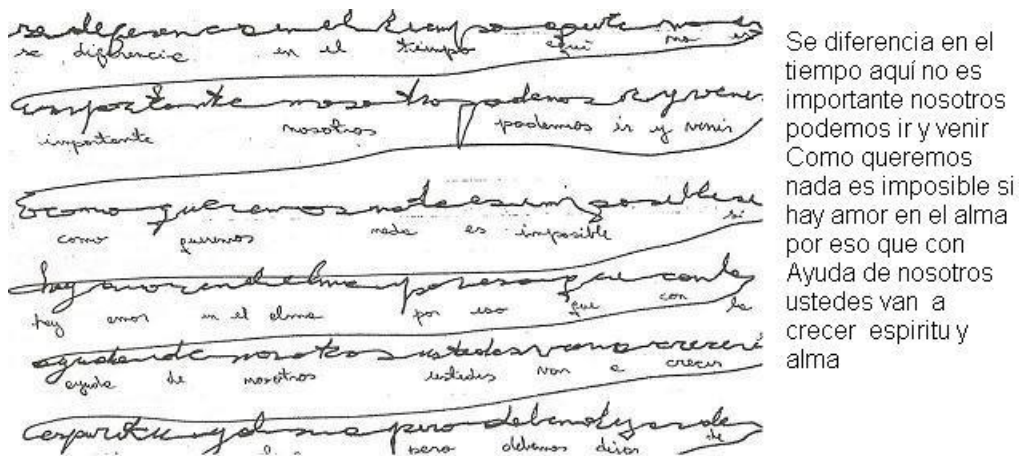 se diferencia en el tiempo aqui no es
se diferencia en el tiempo aqui no es
importante nosotros podemos ir y venir
importante nosotros podemos ir y venir
como queremos nada es imposible si
como queremos nada es imposible si
hay amor en el alma por eso que con la
hay amor en el alma por eso que con la
ayuda de nosotros ustedes van a crecer
ayuda de nosotros ustedes van a crecer
espiritu y alma pero debemos dejar de
pero debemos dejar de
Se diferencia en el
tiempo aquí no es
importante nosotros
podemos ir y venir
Como queremos
nada es imposible si
hay amor en el alma
por eso que con
Ayuda de nosotros
ustedes van a
crecer espiritu y
alma